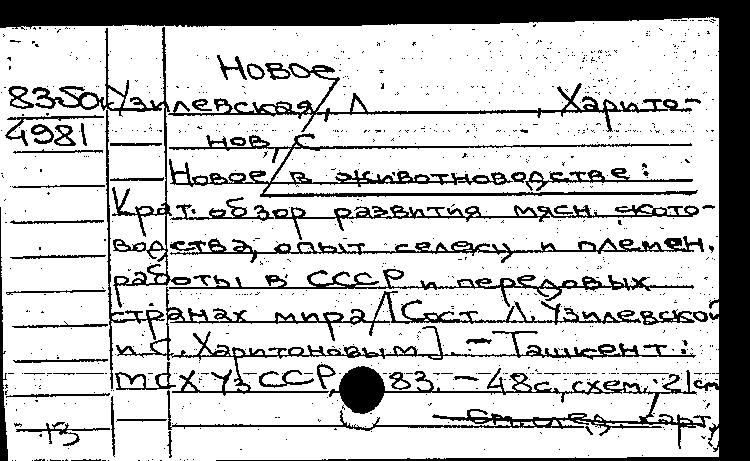 Новое
8350 Узилевская, Л , Харито-
4981 нов, С
Новое в животноводстве:
Крат. обзор развития мясн. ското-
водства, опыт селекц и племен.
работы в СССР и передовых
странах мира / [Сост Л. Узилевской
и С. Харитоновым]. - Ташкент:
МСХ УзССР, 83. - 48 с., схем.; 21 см
См. след. карт.
13